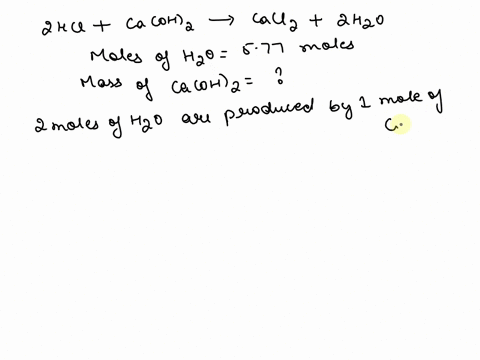 2HCl + Ca(OH)2 → CaCl2 + 2H2O
Moles of H2O = 5.77 moles
Mass of Ca(OH)2 = ?
2 moles of H2O are produced by 1 mole of
C